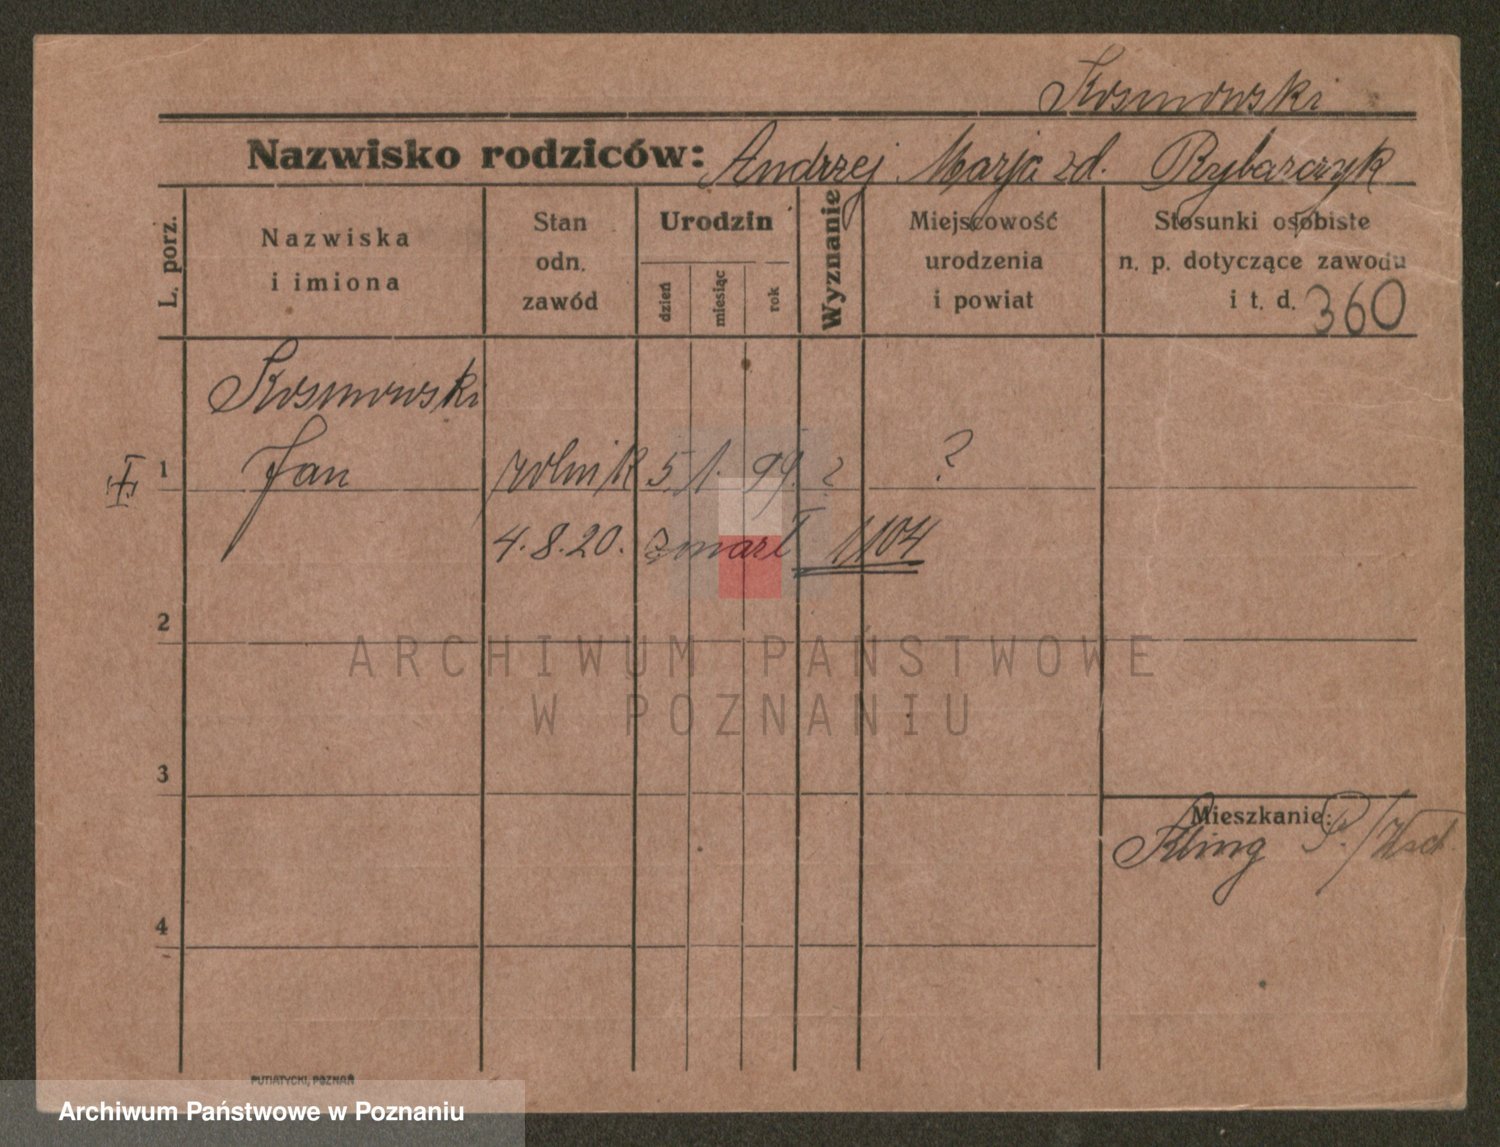 Kosmowski
Nazwisko rodziców: Andrzej Marja zd. Rybarczyk
L. porz.
Nazwiska
i imiona
Stan
odn.
zawód
Urodzin
dzień
miesiąc
rok
Wyznanie
Miejscowość
urodzenia
i powiat
Stosunki osobiste
n. p. dotyczące zawodu
i t. d. 360
Kosmowski
1 Jan rolnik 5. 1. 99. ? ?
4.8.20. zmarł 1104
2
ARCHIWUM PAŃSTWOWE
W POZNANIU
3
Mieszkanie:
4
PUTIATYCKI, POZNAŃ
Archiwum Państwowe w Poznaniu